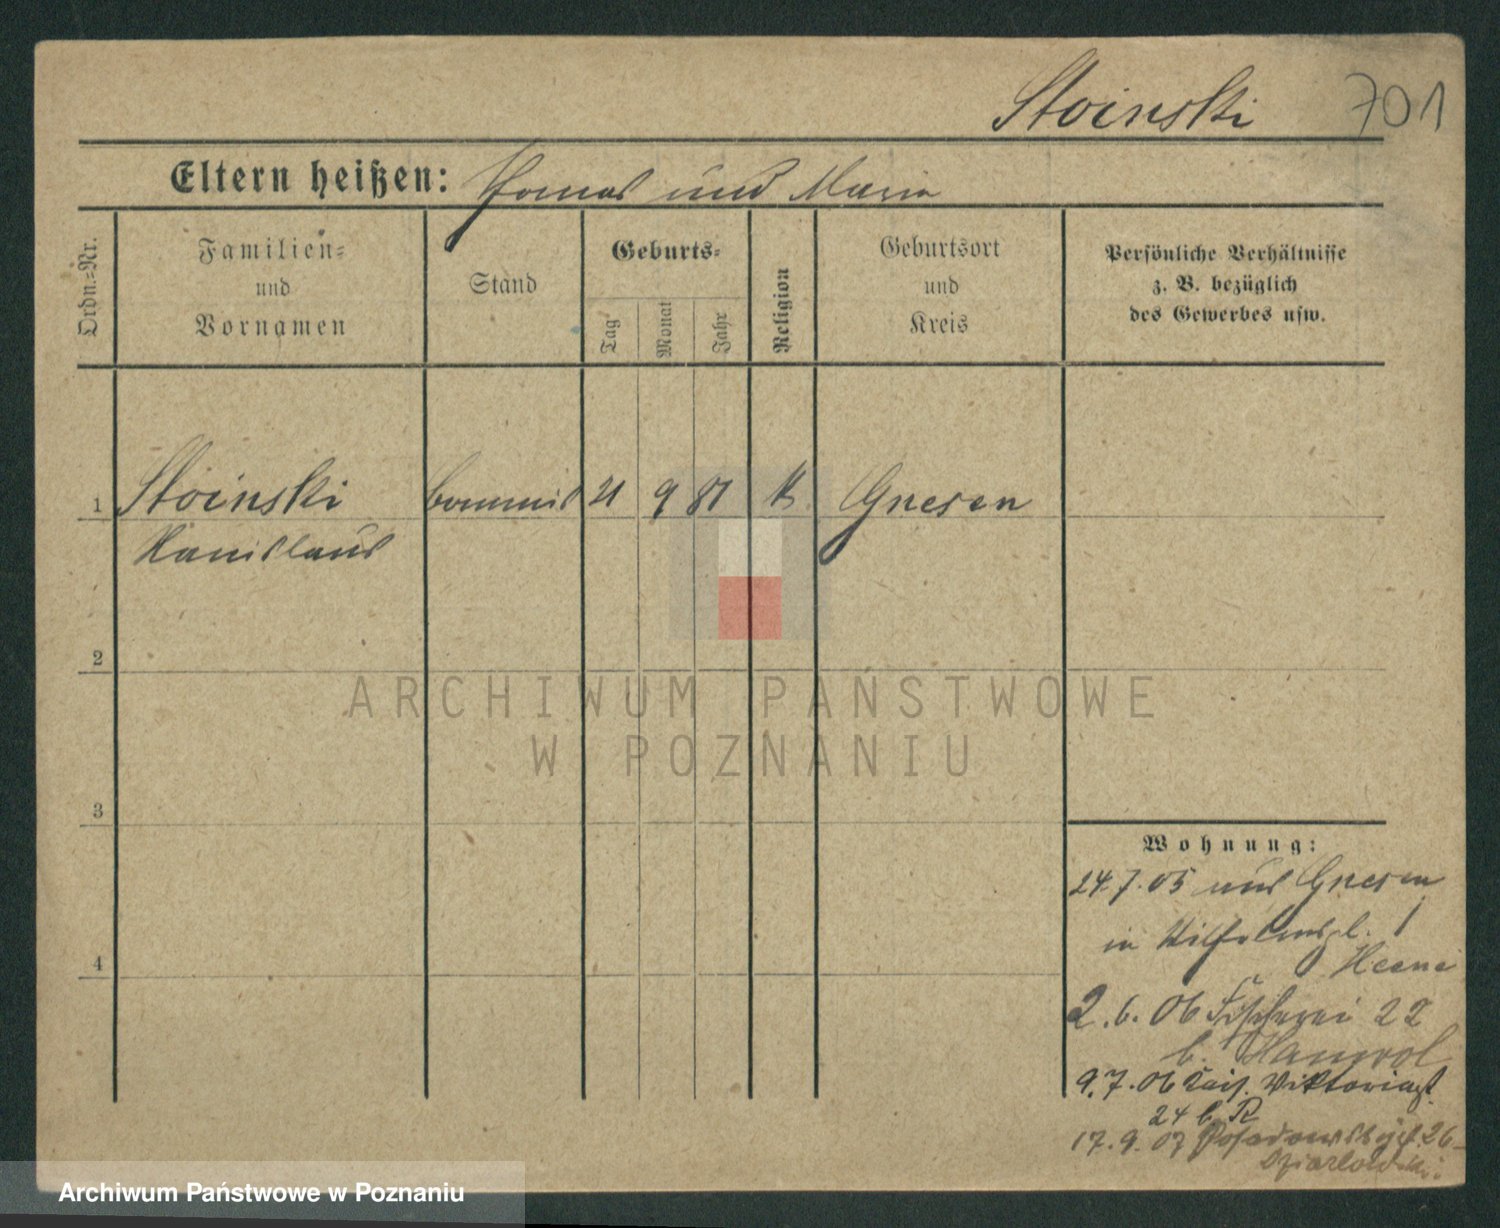 Stoinski 701
Eltern heißen: Thomas und Maria
Ordn.-Nr.
Familien-
und
Vornamen
Stand
Geburts-
Tag
Monat
Jahr
Religion
Geburtsort
und
Kreis
Persönliche Verhältnisse
z. B. bezüglich
des Gewerbes usw.
1 Stoinski Commis 21 9 81 K. Gnesen
Stanislaus
2
ARCHIWUM PAŃSTWOWE
W POZNANIU
3
4
Wohnung:
24.7.05 aus Gnesen
in Wilhelmspl. 1
2.6.06 Fischerei 22
b.
9.7.06 Kais. Viktoriast.
24 b. R
17.9.07 26
Archiwum Państwowe w Poznaniu